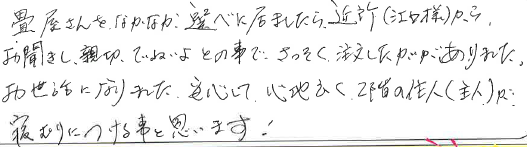 畳屋さんをなかなか選べに居ましたら、近所(江口様)から、
お聞きし、親切、ていねいよとの事で、さっそく注文したがありました。
お世話になりました。安心して、心地よく、2階の住人(主人)が
寝むりにつける事と思います!